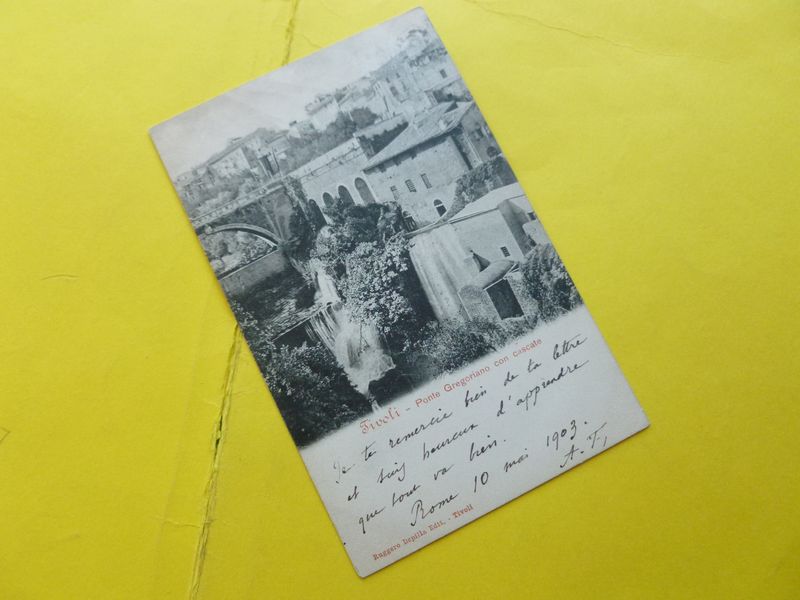 Tivoli - Ponte Gregoriano con cascate
Je te remercie bien de ta lettre
et suis heureux d'apprendre
que tout va bien.
Rome 10 mai 1903.
A. T.
Ruggero Depilla Edit. - Tivoli